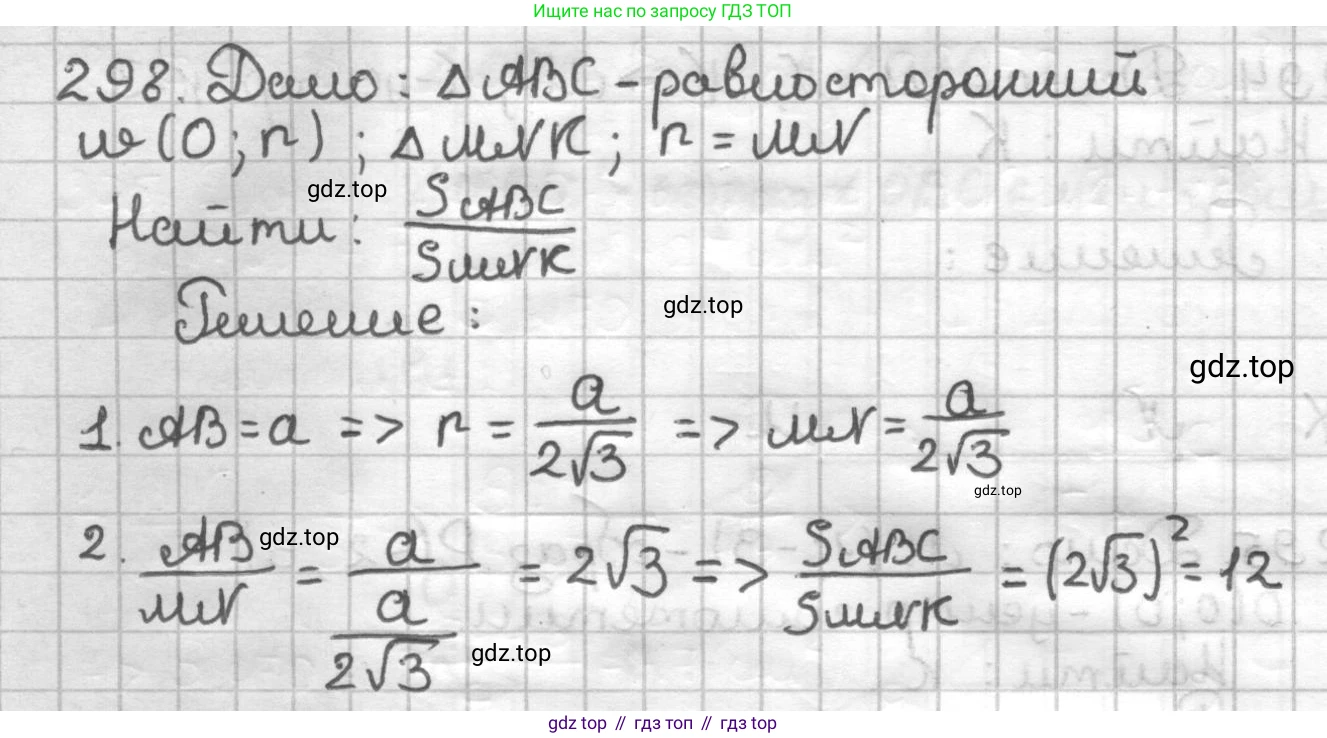 Ищите нас по запросу ГДЗ ТОП
298. Дано: △ABC - равносторонний
w(O; r); △MNK; r = MN
gdz.top
Найти: S_ABC / S_MNK
Решение:
gdz.top
gdz.top
1. AB = a => r = a / 2√3 => MN = a / 2√3
gdz.top
2. AB / MN = a / (a / 2√3) = 2√3 => S_ABC / S_MNK = (2√3)² = 12
gdz.top
gdz.top
gdz top // гдз топ // гдз top